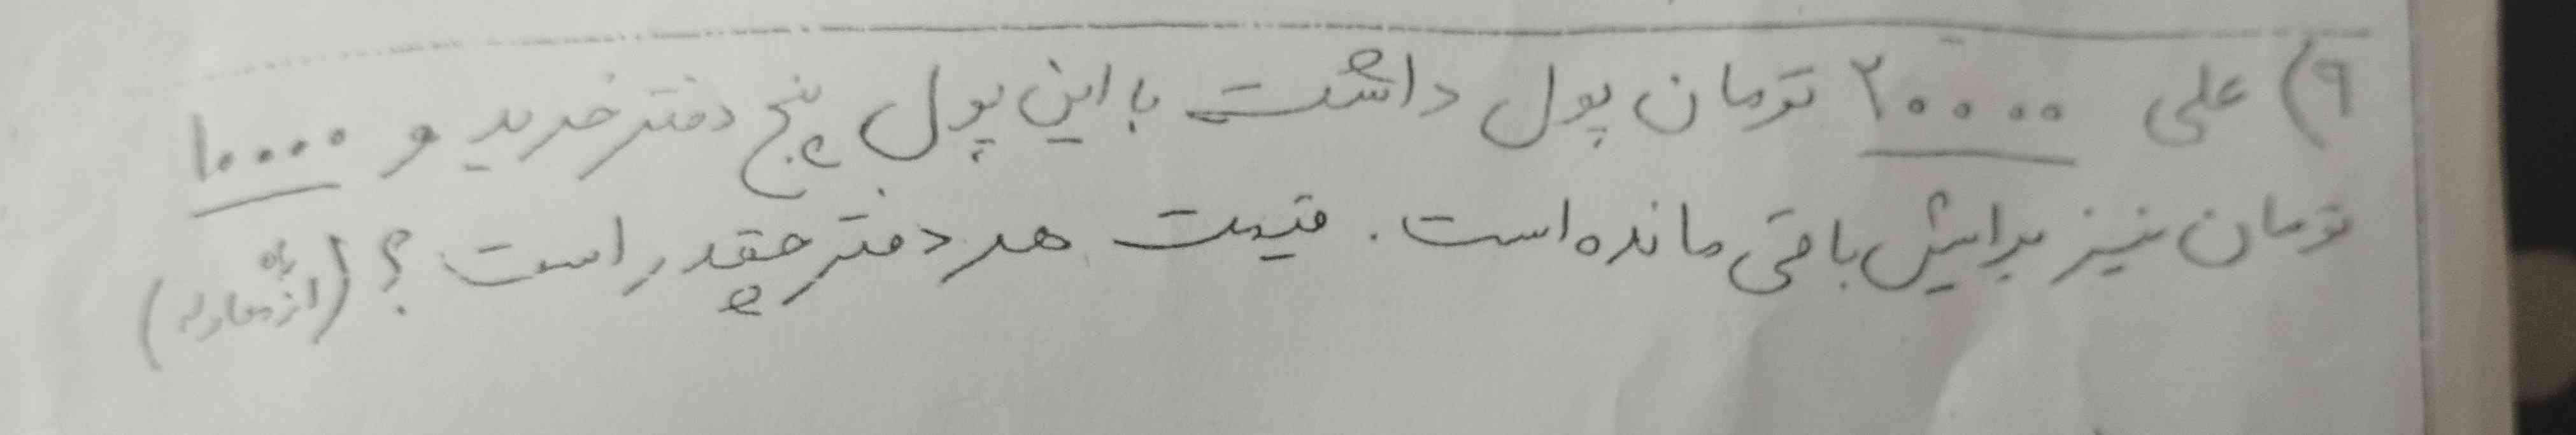 ۹) علی ۲۰۰۰۰ تومان پول داشت با این پول پنج دفتر خرید و ۱۰۰۰۰
تومان نیز برایش باقی مانده است. قیمت هر دفتر چقدر است؟ (از راه معادله)